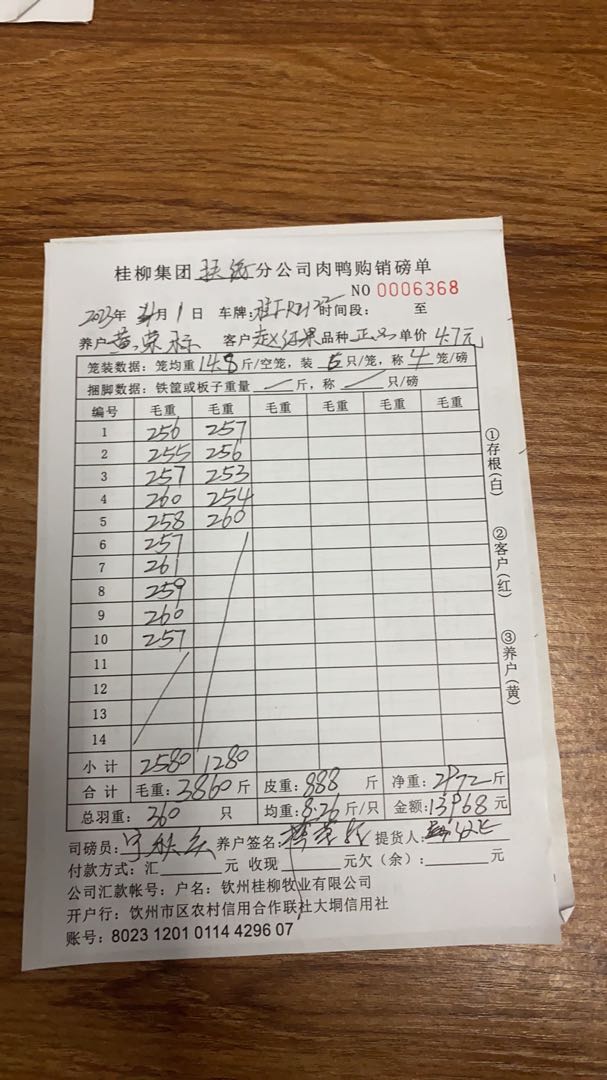 桂柳集团 扶绥 分公司肉鸭购销磅单
NO 0006368
2023年 月 1 日 车牌: 时间段: 至
养户 黄荣标 客户 赵红果 品种 正品 单价 4.7元
笼装数据: 笼均重 14.8 斤/空笼, 装 6 只/笼, 称 4 笼/磅
捆脚数据: 铁筐或板子重量 / 斤, 称 / 只/磅
编号 毛重 毛重 毛重 毛重 毛重 毛重
1 256 257
2 255 256
3 257 253
4 260 254
5 258 260
6 257
7 261
8 259
9 260
10 257
11
12
13
14
小计 2580 1280
合计 毛重: 3860 斤 皮重: 888 斤 净重: 2972 斤
总羽重: 360 只 均重: 8.26 斤/只 金额: 13968 元
司磅员: 养户签名: 提货人:
付款方式: 汇 元 收现 元欠(余): 元
公司汇款帐号: 户名: 钦州桂柳牧业有限公司
开户行: 钦州市区农村信用合作联社大垌信用社
账号: 8023 1201 0114 4296 07
①存根(白)
②客户(红)
③养户(黄)